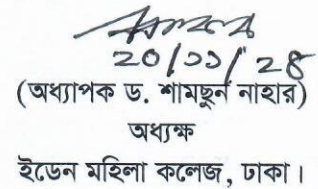 ২০/১১/২৪
(অধ্যাপক ড. শামছুন নাহার)
অধ্যক্ষ
ইডেন মহিলা কলেজ, ঢাকা।